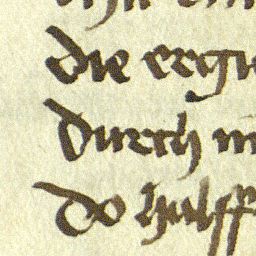 die ergi
durch m
do halff